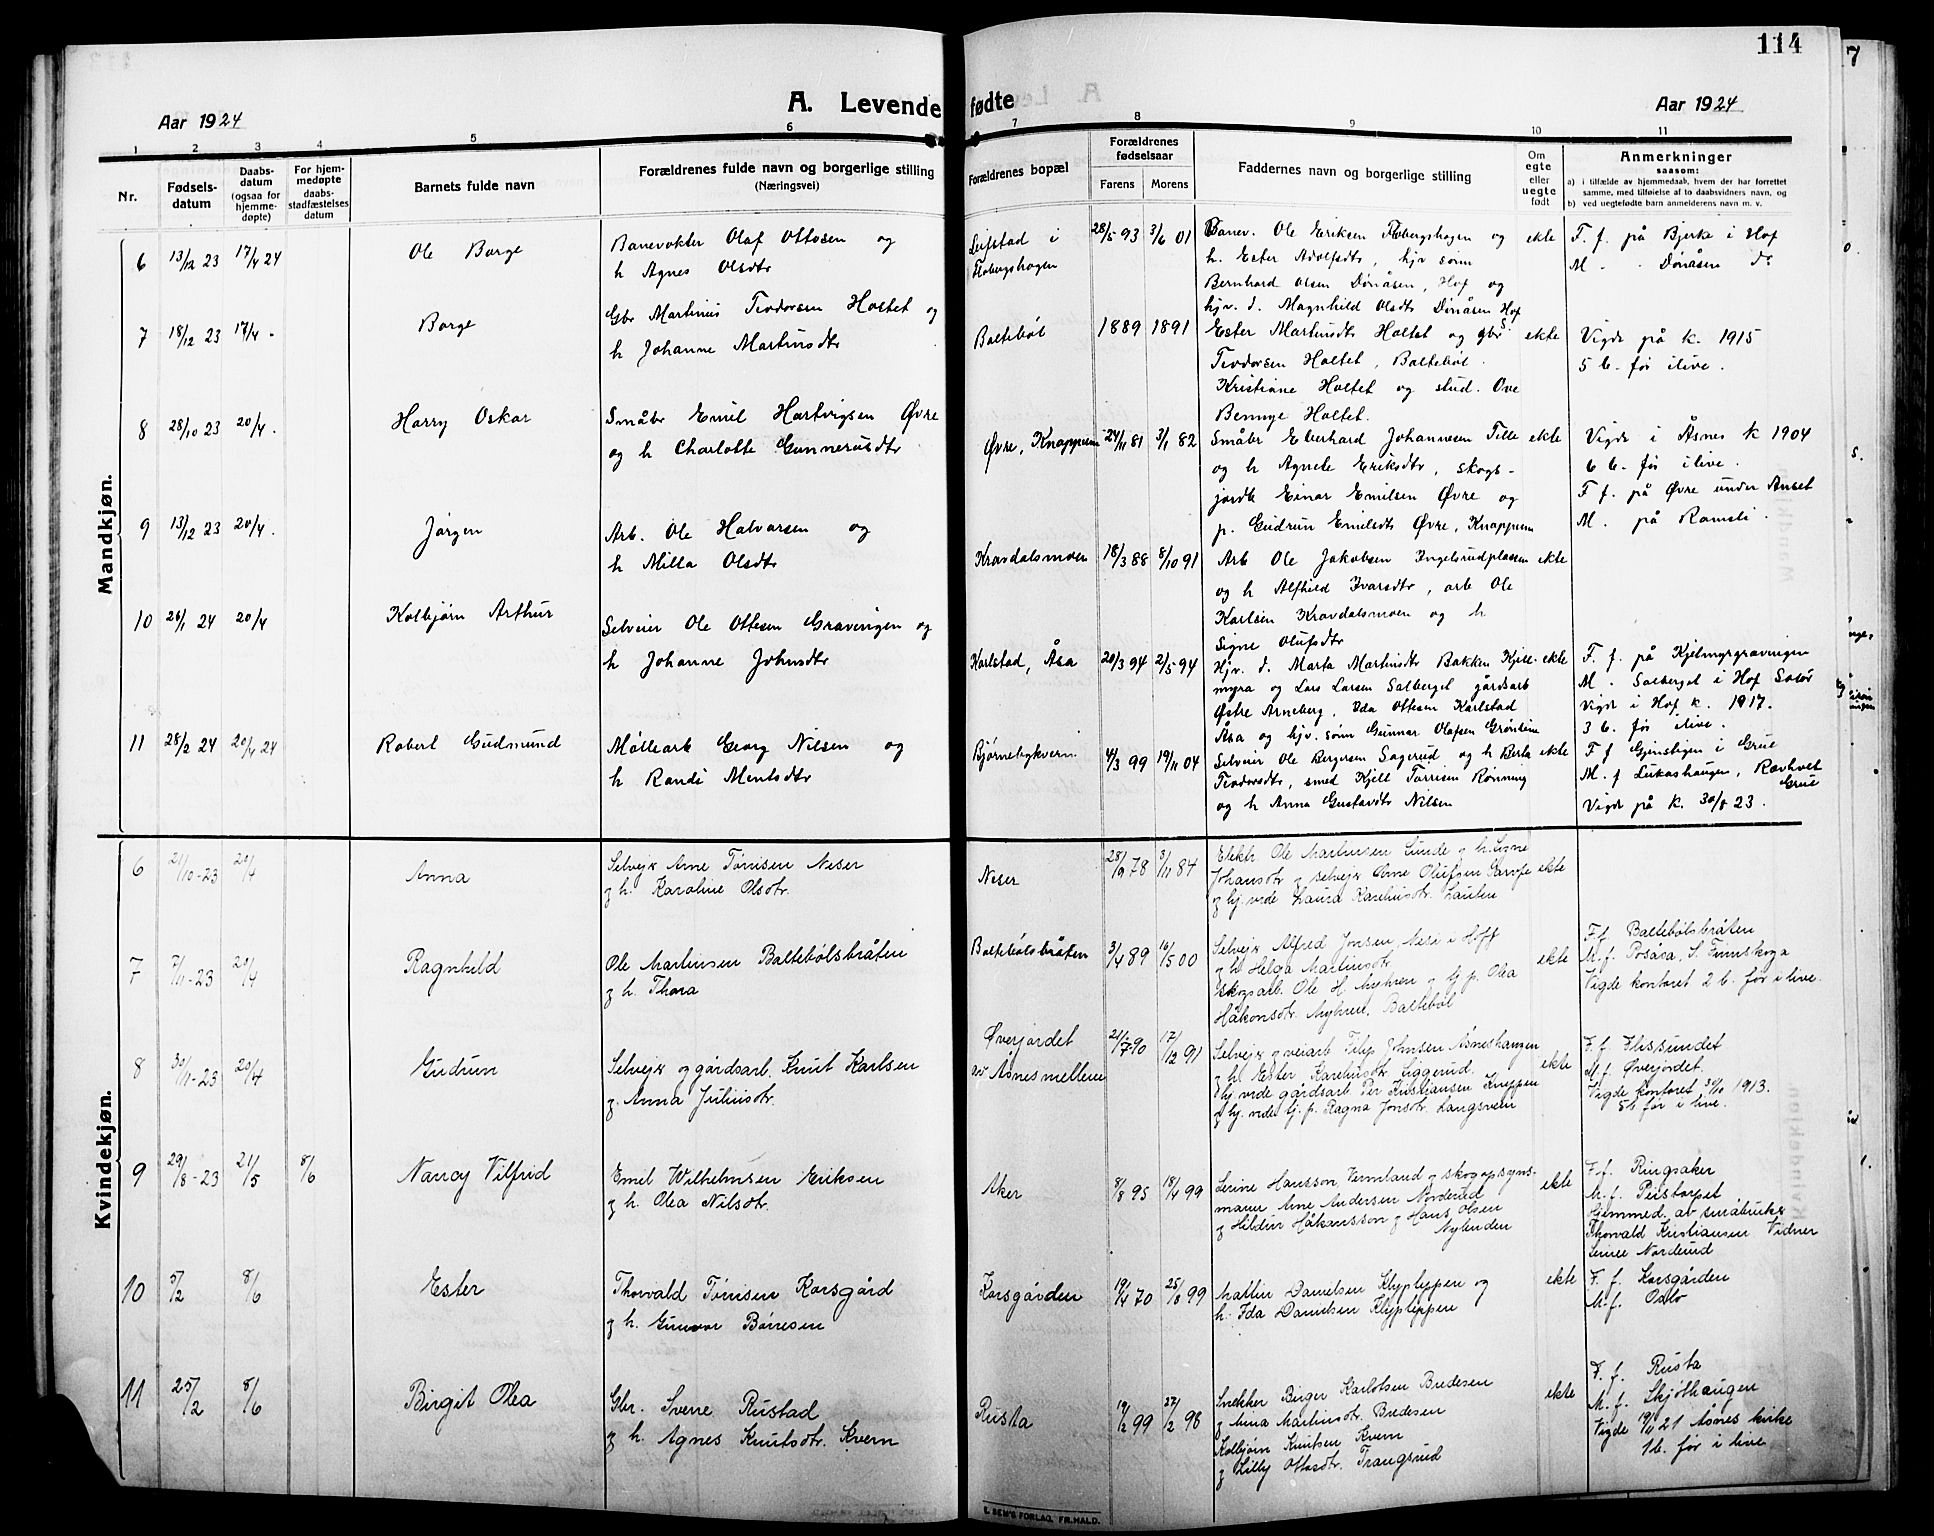 114
7
A. Levende fødte
Aar 1924
Aar 1924
1 2 3 4 5 6 7 8 9 10 11
Nr.
Fødsels-
datum
Daabs-
datum
(ogsaa for
hjemme-
døpte)
For hjem-
medøpte
daabs-
stadfæstelses
datum
Barnets fulde navn
Forældrenes fulde navn og borgerlige stilling
(Næringsvei)
Forældrenes bopæl
Forældrenes
fødselsaar
Farens Morens
Faddernes navn og borgerlige stilling
Om
egte
eller
uegte
født
Anmerkninger
saasom:
a) i tilfælde av hjemmedaab, hvem der har forrettet
samme, med tilføielse af to daabsvidners navn, og
b) ved uegtefødte barn anmelderens navn m. v.
Mandkjøn.
6 13/12 23 17/4 24 Ole Borge
Banevokter Olaf Ottosen og
h Agnes Olsdtr
Leifstad i
Flobergshagen
28/5 93 3/6 01
Banev. Ole Eriksen Flobergshagen og
h. Ester Adolfsdtr, hjv sønn
Bernhard Olsen Dønåsen, Hof og
hjv. d. Magnhild Olsdtr Dønåsen Hof
ekte
F. f. på Bjerke i Hof
M - - Dønåsen do
7 18/12 23 17/4 - Borge
Gbr Martinus Teodorsen Holtet og
h Johanne Martinsdtr
Baltebøl
1889 1891
Ester Martinsdtr Holtet og gbr S.
Teodorsen Holtet, Baltebøl
Kristiane Holtet og stud. Ove
Bennye Holtet.
ekte
Vigde på k. 1915
5 b. før ilive.
8 28/10 23 20/4. Harry Oskar
Småbr Emil Hartvigsen Øvre
og h Charlotte Gunnerusdtr
Øvre, Knappem
24/11 81 3/1 82
Småbr Eberhard Johannesen Tille
og h Agnete Eriksdtr, skogs-
jordbr Einar Emilsen Øvre og
p. Gudrun Emilsdtr Øvre, Knappem
ekte
Vigde i Åsnes k 1904
6 b. før ilive.
F f. på Øvre under Anset
M. på Ramsli.
9 13/12 23 20/4. Jørgen
Arb. Ole Halvorsen og
h Milla Olsdtr
Kravdalsmoen
18/3 88 8/10 91
Arb Ole Jakobsen Ingelsrudplassen
og h Alfhild Ivarsdtr, arb Ole
Karlsen Kravdalsmoen og h
Signe Olufsdtr
ekte
10 26/1 24 20/4 Kolbjørn Arthur
Selveier Ole Ottesen Gravingen og
h Johanne Johnsdtr
Karlstad, Åsa
20/3 94 2/5 94
Hjv. d. Marta Martinsdtr Bakken Kjell-
myra og Lars Larsen Salberget gårdsarb
Østre Arneberg, Ida Ottesen Karlstad
Åsa og hjv. sønn Gunnar Olafsen Grønlien
ekte
F. f. på Kjelmyrgravingen
M. Salberget i Hof Solør
Vigde i Hof k. 1917.
3 b. før ilive.
11 28/2 24 20/4 24 Robert Gudmund
Møllearb Georg Nilsen og
h Randi Mentsdtr
Bjørnebykvern
4/3 99 19/11 04
Selveier Ole Bergersen Sagerud og h Berta
Teodorsdtr, smed Kjell Torrisen Rønning
og h Anna Gustavdtr Nilsen
ekte
F f Gjenstigen i Grue
M. f Lukashaugen, Rovholt
Grue
Vigde på k. 30/8 23.
Kvindekjøn.
6 21/10-23 20/4 Anna
Selvejr Arne Tørrisen Neser
og h. Karoline Olsdtr.
Neser
28/9 78 3/11 84
Elektr. Ole Martinsen Lunde og h. Signe
Johansdtr og selvejer Arne Olufsen
og hj. vrde Laura Karelusdtr.
ekte
7 7/11-23 20/4 Ragnhild
Ole Martinsen Baltebølsbråten
og h. Thora
Baltebølsbråten
3/4 89 16/5 00
Selvejr Alfred Jonsen, Nesi i Hoff
og h Helga Martinsdtr
Skogsarb. Ole H. Myhren og hj p. Olea
Håkonsdtr. Myhren, Baltebøl
ekte
F f. Baltebølsbråten
M. f. Posåsa, S. Finnskoga
Vigde kontoret 2 b. før i live.
8 30/11-23 20/4 Gudrun
Selvejr og gårdsarb. Knut Karlsen
og Anna Juliusdtr.
Øverjordet
av Åsnes mellene
21/7 90 17/12 91
Selvejr og veiarb Filip Johnsen Åsneshaugen
og h. Ester Karelusdtr. Liggerud.
Ihj. vrde gårdsarb Per Kristiansen Knappen
og hj. vrde hj. p. Ragna Jonsdtr. Langsveen
ekte
F. f. Flissundet
M. f. Øverjordet.
Vigde kontoret 30/10 1913.
5 b før i live.
9 29/8-23 21/5 8/6 Nancy Vilfrid
Emil Wilhelmsen Eriksen
og h. Olea Nilsdtr.
Aker
8/8 95 18/4 99
Serine Hansson, Vermland og skogopsyns-
mann Arne Andersen Norderud
og Hildur Håkansson og Hans Olsen
Nylenden
ekte
F. f. Ringsaker
M. f. Peistorpet
Hjemmed. av småbruker
Thorvald Kristiansen Vidner
Serine Norderud
10 5/2 8/6 Ester
Thorvald Tørrisen Korsgård
og h. Gunvor Børresen
Korsgården
19/4 70 25/8 99
Martin Danielsen Klypleppen og
h. Ida Danielsen Klypleppen
ekte
F. f. Korsgården
M. f. Oslo
11 25/2 8/6 Birgit Olea
Gbr. Sverre Rustad
og h. Agnes Knutsdtr. Kvern
Rusta
19/2 99 27/2 98
Snekker Birger Karlotsen Bredesen
og Anna Martinsdtr. Bredesen
Kolbjørn Knutsen Kvern
og Lilly Ottosdtr. Trangsrud
ekte
F. f. Rusta
M. f. Skjølhaugen
Vigde 19/11 21 Åsnes kirke
1 b. før i live
E. SEM'S FORLAG, FR.HALD.